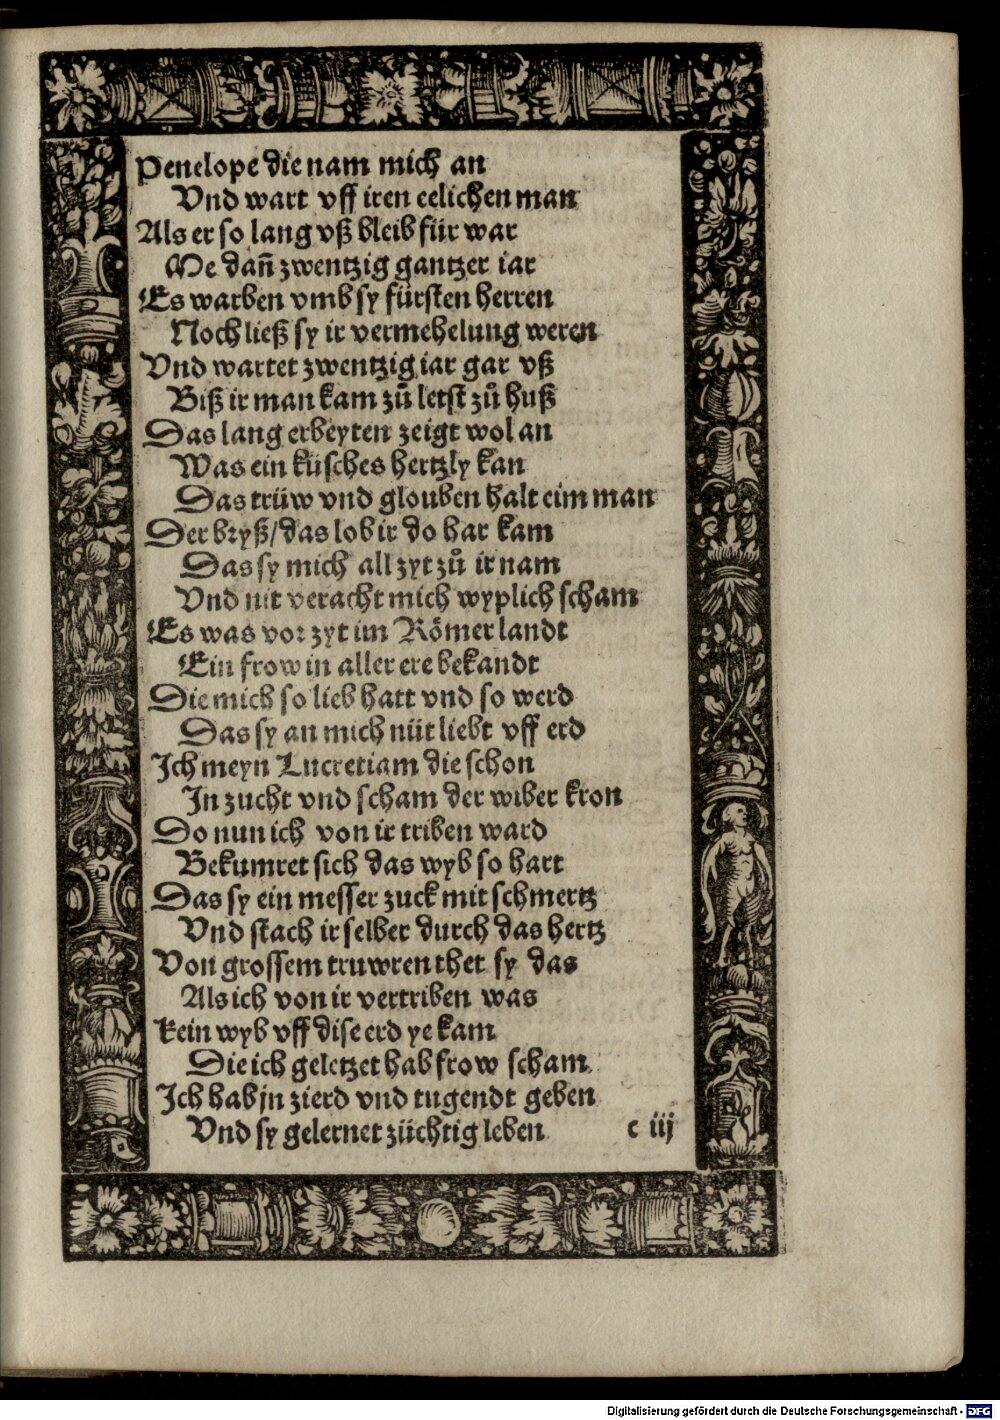 Penelope die nam mich an
Vnd wart vff iren eelichen man
Als er so lang vß bleib für war
Me dañ zwentzig gantzer iar
Es warben vmb sy fürsten herren
Noch ließ sy ir vermehelung weren
Vnd wartet zwentzig iar gar vß
Biß ir man kam zů letst zů huß
Das lang erbeyten zeigt wol an
Was ein küsches hertzly kan
Das trüw vnd glouben halt eim man
Der bryß/das lob ir do har kam
Das sy mich all zyt zů ir nam
Vnd nit veracht mich wyplich scham
Es was vor zyt im Römer landt
Ein frow in aller ere bekandt
Die mich so lieb hatt vnd so werd
Das sy an mich nüt liebt vff erd
Ich meyn Lucretiam die schon
In zucht vnd scham der wiber kron
Do nun ich von ir triben ward
Bekumret sich das wyb so hart
Das sy ein messer zuck mit schmertz
Vnd stach ir selber durch das hertz
Von grossem truwren thet sy das
Als ich von ir vertriben was
Kein wyb vff dise erd ye kam
Die ich geletzet hab frow scham
Ich hab jn zierd vnd tugendt geben
Vnd sy gelernet züchtig leben
c iij
Digitalisierung gefördert durch die Deutsche Forschungsgemeinschaft - DFG